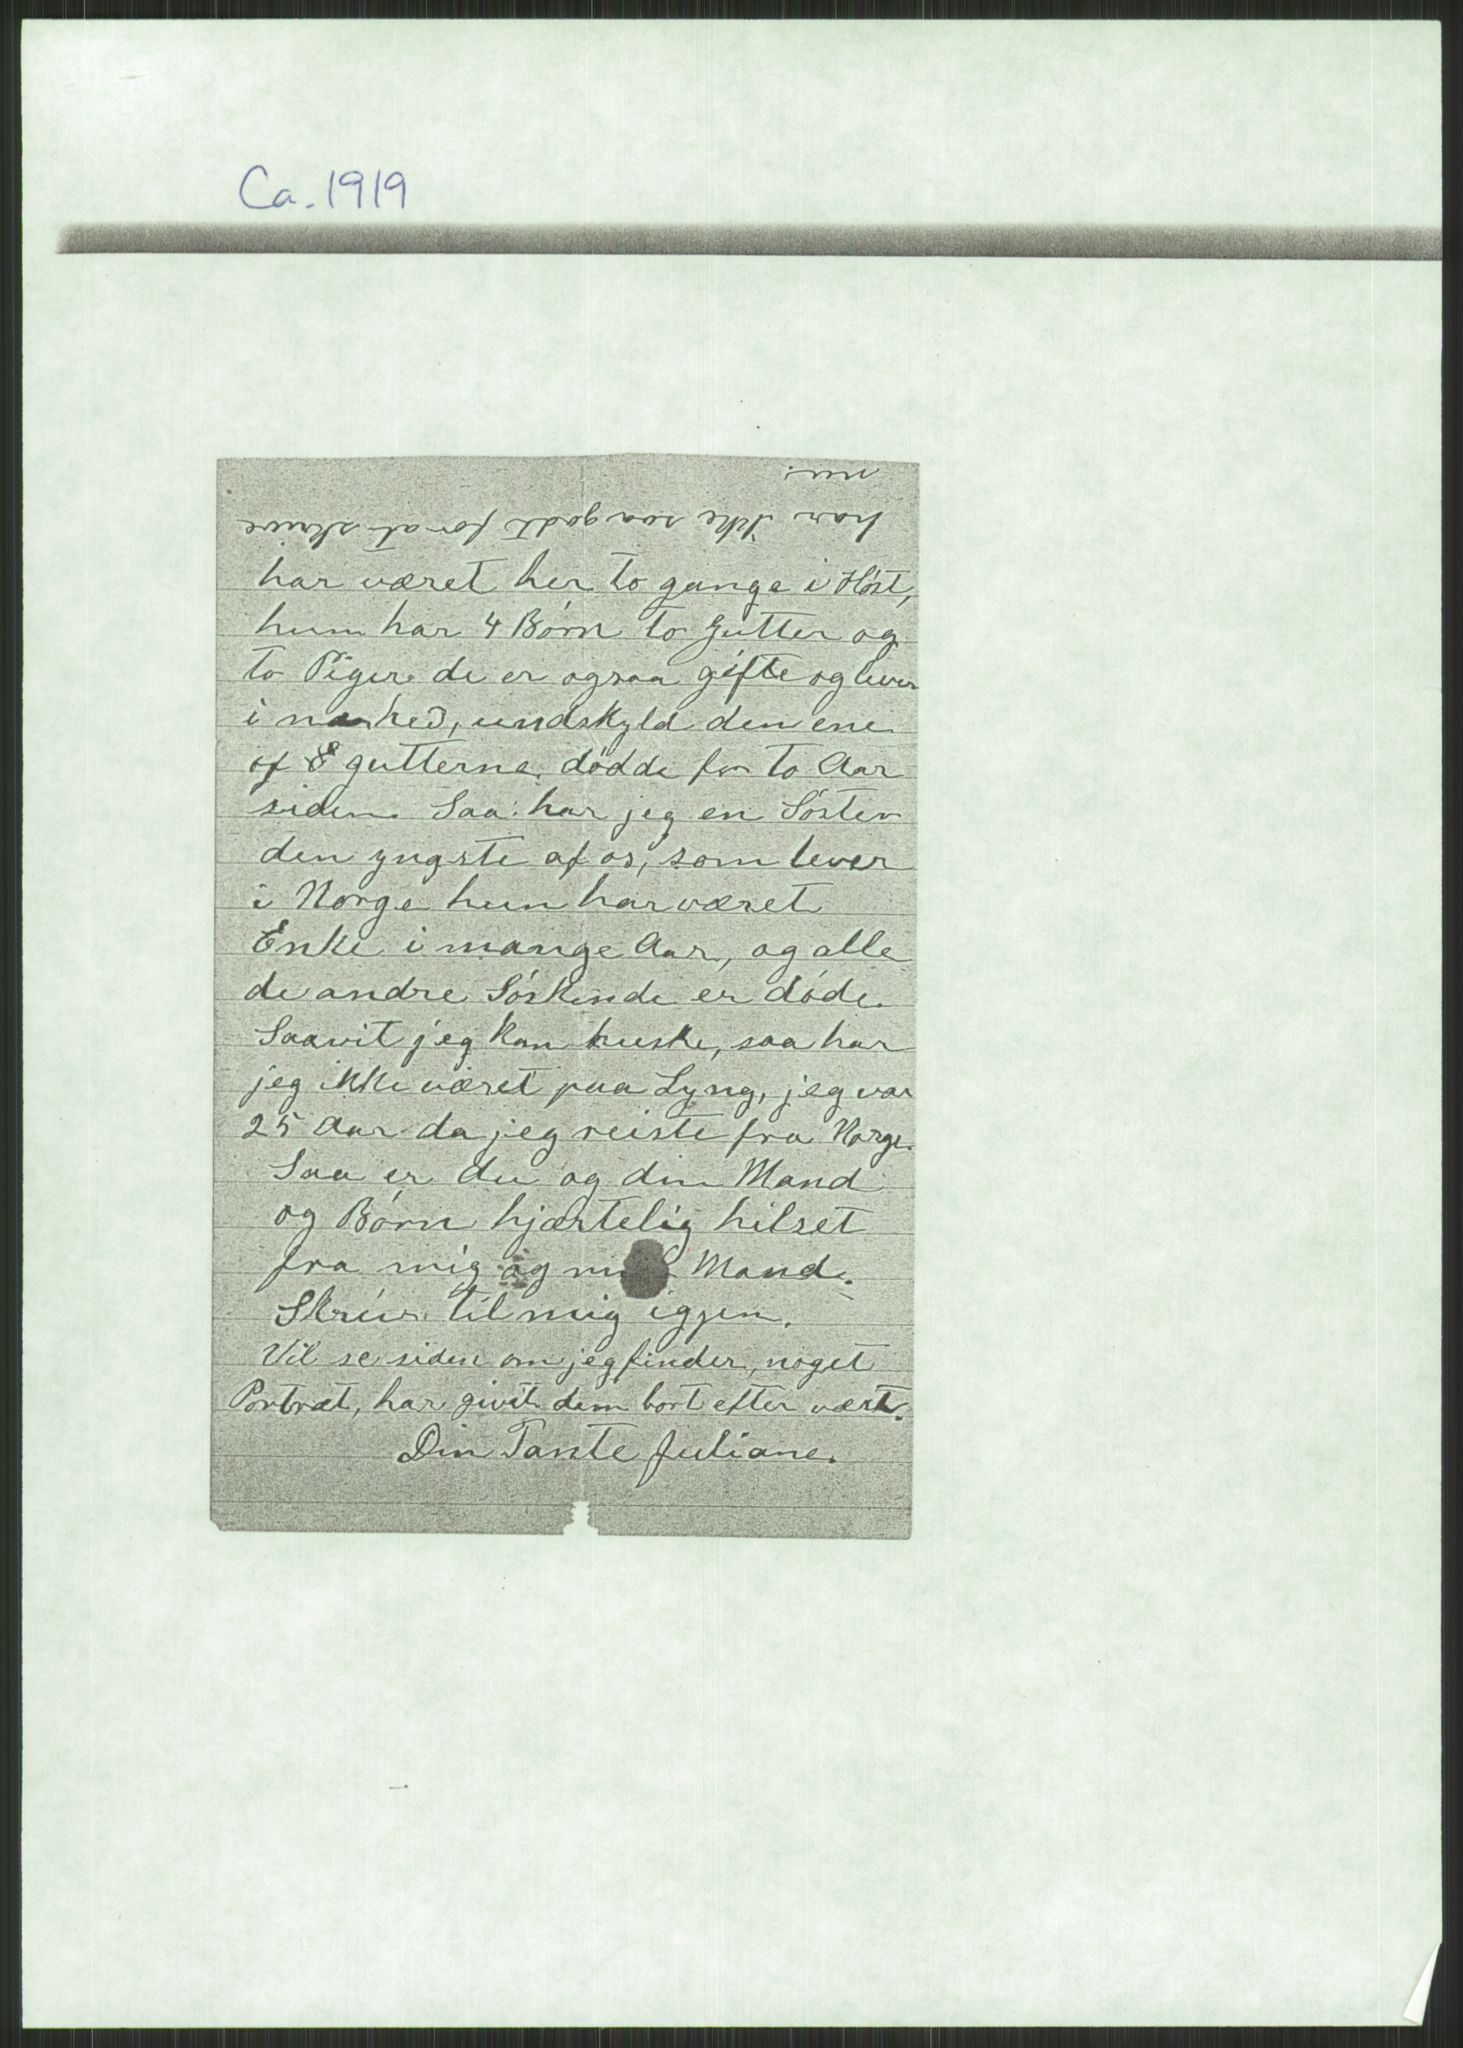 Ca. 1919
har ikke saa godt for at skrive
nu.
har været her to gange i Høst,
hun har 4 Børn to Gutter og
to Piger de er ogsaa gifte og lever
i nærhed, undskyld den ene
af gutterne dødde for to Aar
siden. Saa har jeg en Søster
den yngste af os, som lever
i Norge hun har været
Enke i mange Aar, og alle
de andre Søskende er døde.
Saavit jeg kan huske, saa har
jeg ikke været paa Lyng, jeg var
25 Aar da jeg reiste fra Norge.
Saa er du og din Mand
og Børn hjærtelig hilset
fra mig og min Mand.
Skriv til mig igjen.
Vil se siden om jeg finder noget
Portræt, har givet dem bort efter vært.
Din Tante Juliane.